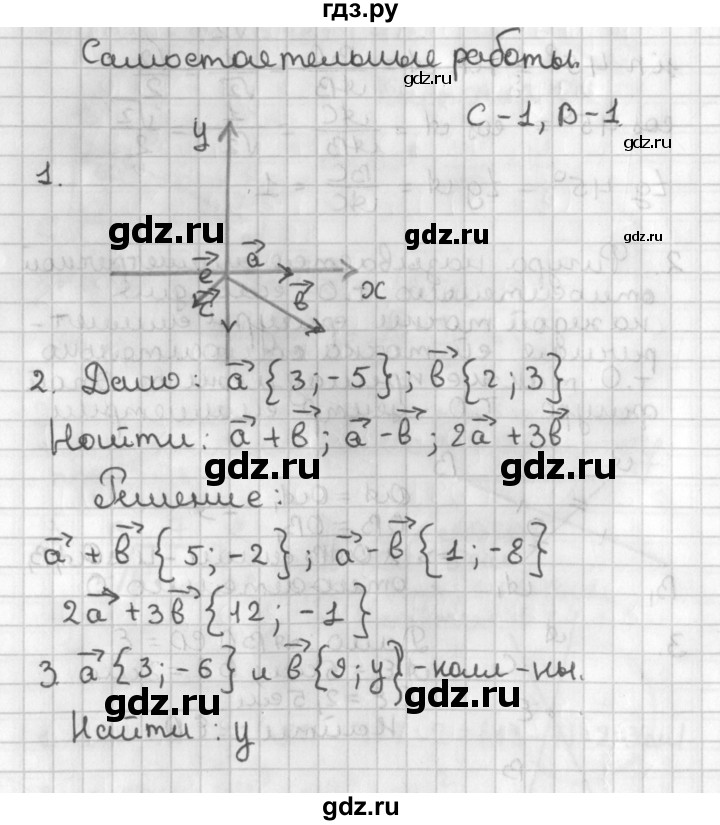 гдз.ру
Самостоятельные работы.
gdz.ru
С-1, В-1
gdz.ru
y
1.
gdz.ru gdz.ru gdz.ru
e a
c b x
2. Дано: a {3; -5}; b {2; 3}
Найти: a + b; a - b; 2a + 3b
gdz.ru gdz.ru
Решение:
a + b {5; -2}; a - b {1; -8}
2a + 3b {12; -1}
3. a {3; -6} и b {9; y} -колл-ны.
gdz.ru gdz.ru
Найти: y
gdz.ru